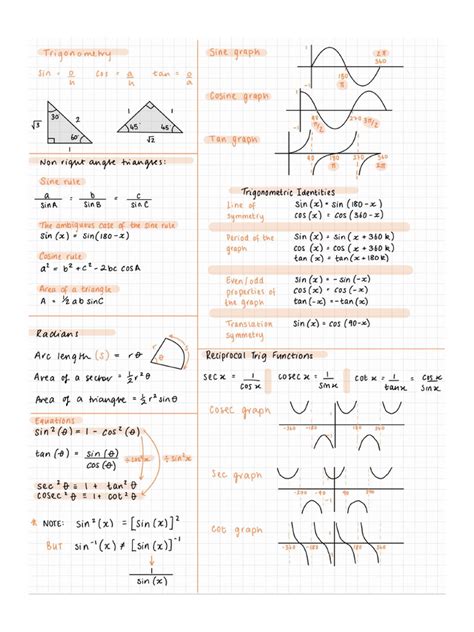 Trigonometry
sin = o/h cos = a/h tan = o/a
√3 30 2 60° 1
1 1 45° 45° √2
Non right angle triangles:
Sine rule
a/sinA = b/sinB = c/sinC
The ambiguous case of the sine rule
sin(x) = sin(180-x)
Cosine rule
a² = b² + c² - 2bc cosA
Area of a triangle
A = ½ ab sinC
Radians
Arc length (s) = rθ
Area of a sector = ½r²θ
Area of a triangle = ½r² sinθ
r s θ
Equations
sin²(θ) = 1 - cos²(θ)
tan(θ) = sin(θ)/cos(θ)
÷cos²x ÷sin²x
sec²θ = 1 + tan²θ
cosec²θ = 1 + cot²θ
* NOTE: sin²(x) = [sin(x)]²
BUT sin⁻¹(x) ≠ [sin(x)]⁻¹
1/sin(x)
Sine graph
180 π 2π 360
Cosine graph
90 π/2 180 π 270 3π/2
Tan graph
90 180 270 360
Trigonometric Identities
Line of symmetry
sin(x) = sin(180-x)
cos(x) = cos(360-x)
Period of the graph
sin(x) = sin(x + 360k)
cos(x) = cos(x + 360k)
tan(x) = tan(x + 180k)
Even/odd properties of the graph
sin(x) = -sin(-x)
cos(x) = cos(-x)
tan(-x) = -tan(x)
Translation symmetry
sin(x) = cos(90-x)
Reciprocal Trig Functions
sec x = 1/cos x cosec x = 1/sin x cot x = 1/tan x = cos x/sin x
Cosec graph
-360 -180 180 360
Sec graph
Cot graph
-360 -180 180 360